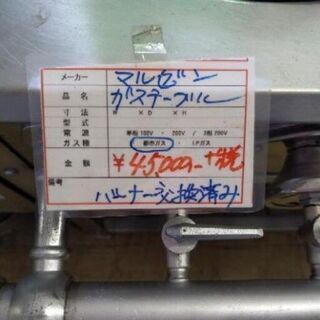 メーカー マルゼン
品名 ガステーブル
寸法 W × D × H
型式
電源 単相 100V ・ 200V / 3相 200V
ガス種 都市ガス ・ LPガス
金額 ¥45,000-+税
備考
バーナー交換済み